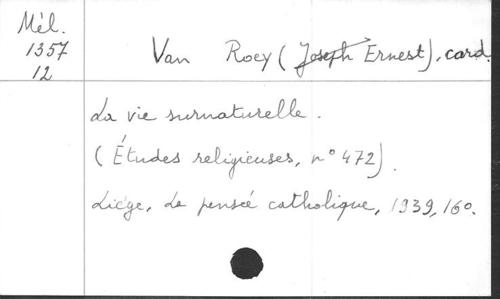 Mél.
1357
12
Van Roey (Joseph Ernest), card.
La vie surnaturelle.
(Études religieuses, n° 472).
Liège, La pensée catholique, 1939, 16°.